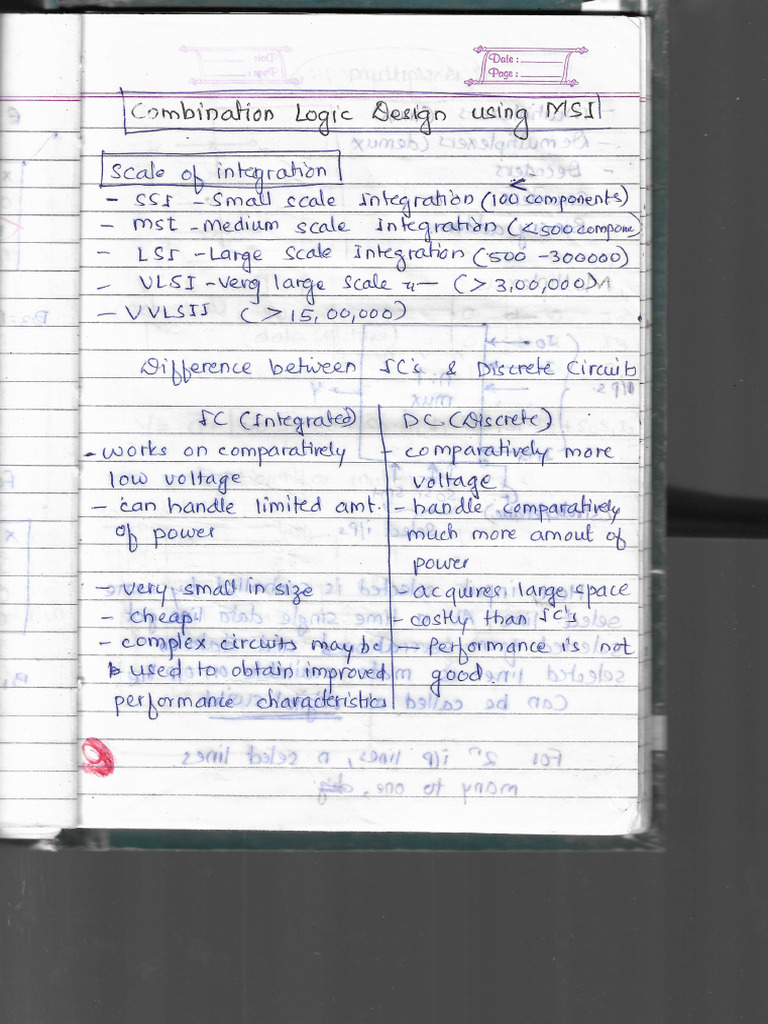 Date :
Page :
Combination Logic Design using MSI
Scale of integration
- SSI - Small scale Integration (<100 components)
- MSI - Medium scale Integration (<500 compone)
- LSI - Large Scale Integration (500 - 300000)
- VLSI - Very large scale "— (> 3,00,000)
- VVLSII (> 15,00,000)
Difference between IC's & Discrete Circuits
IC (Integrated)
- works on comparatively
low voltage
- can handle limited amt.
of power
- very small in size
- cheap
- complex circuits may be
used to obtain improved
performance characteristics
DC (Discrete)
- comparatively more
voltage
- handle comparatively
much more amout of
power
- acquires large space
- costly than IC's
- Performance is not
good.
9